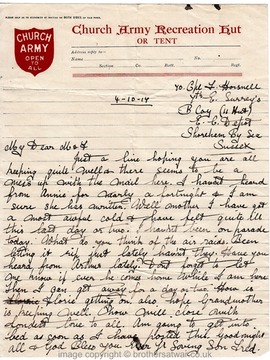 CHURCH ARMY
OPEN TO ALL
Church Army Recreation Hut
OR TENT
Address reply to:-
Name
4-10-17
Cpl F. Horsnell
E. Surrey's
B Coy (11 Hut)
E. C. Depot
Shoreham By Sea
Sussex
My Dear M & F
Just a line hoping you are all
keeping quite well as there seems to be a
mess up with the mail here. I havent heard
from Annie for nearly a fortnight & I am
sure she has written. Well mother I have got
a most awful cold & have felt quite ill
this last day or two. I havent been on parade
today. What do you think of the air raids been
getting it rip just lately havent they. Have you
heard from Arthur lately. Dont forget to let
me know if ever he comes home while I am here
then I can get away for a day or two. How is
Florie getting on, also hope Grandmother
is keeping well. Now will close with
fondest love to all. Am going to get into
bed as soon as I have posted this. Goodnight
all & God bless you. Your Loving Son Fred
copyright © brothersatwar.co.uk